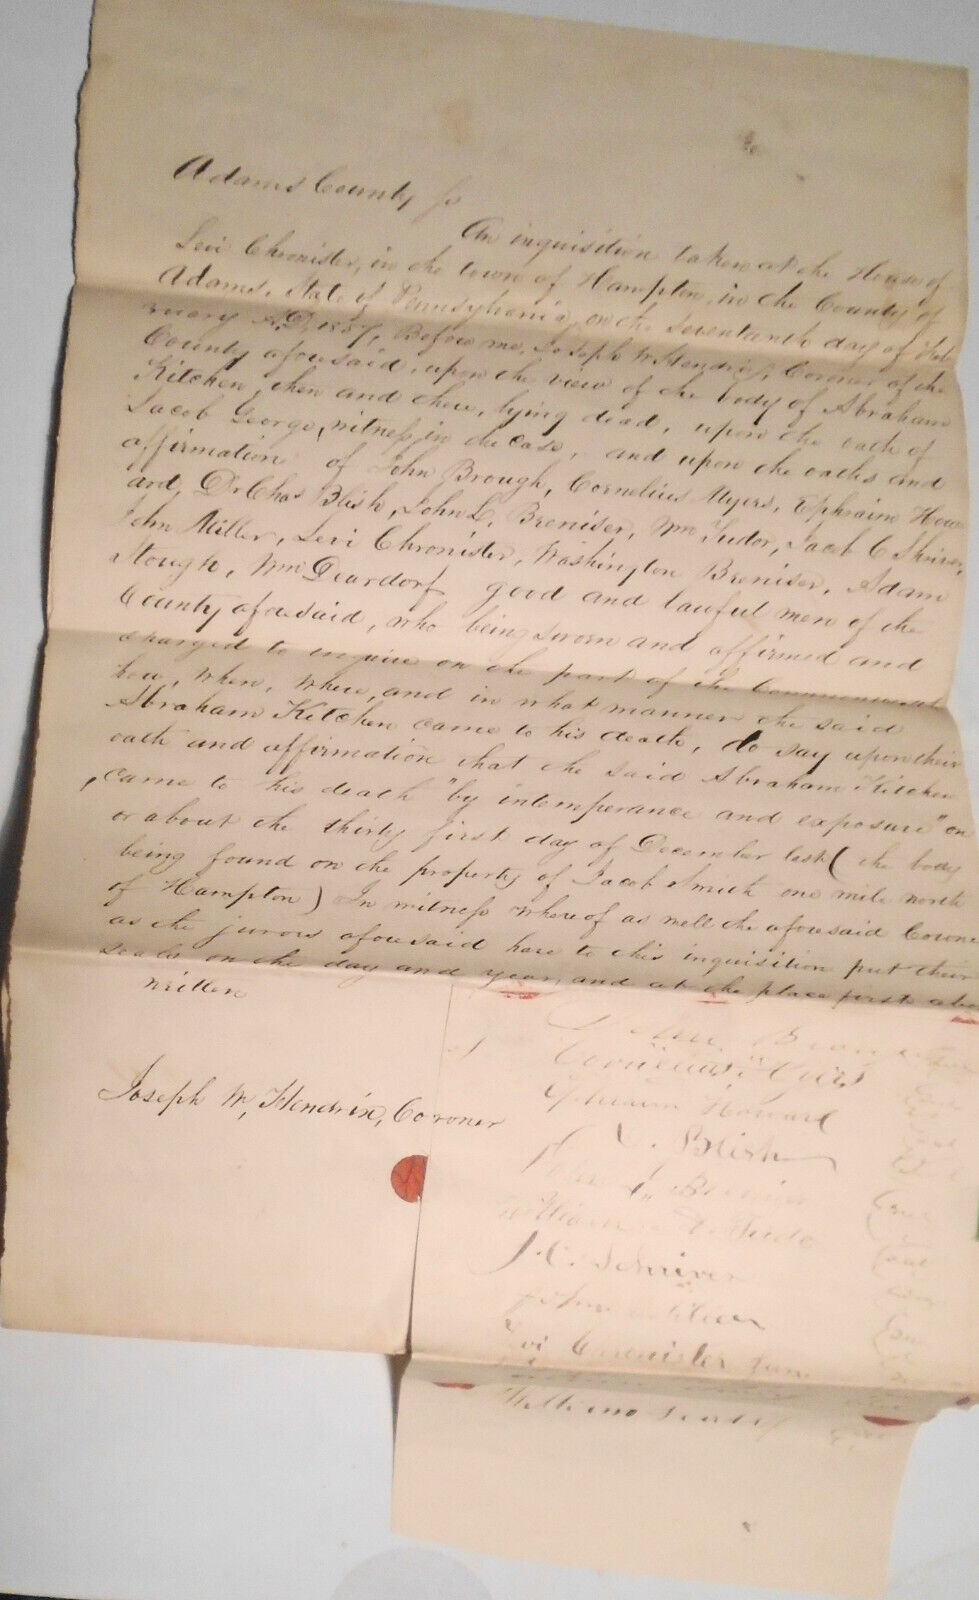 Adams County ss
An inquisition taken at the House of
Levi Chronister, in the town of Hampton, in the County of
Adams, State of Pennsylvania, on the Seventeenth day of Feb-
ruary A.D. 1857, Before me, Joseph W Hendrix, Coroner of the
County aforesaid, upon the view of the body of Abraham
Kitchen, then and there, lying dead, upon the oath of
Jacob George, witness in the case, and upon the oaths and
affirmation of John Brough, Cornelius Myers, Ephraim How-
ard, Dr Chas Blish, John L. Breniser, Wm Tudor, Jacob C Shriver,
John Miller, Levi Chronister, Washington Breniser, Adam
Stough, Wm Deardorf good and lawful men of the
County aforesaid, who being sworn and affirmed and
charged to inquire on the part of the Commonwealth
how, when, where, and in what manner the said
Abraham Kitchen came to his death, do say upon their
oath and affirmation that the said Abraham Kitchen
came to his death "by intemperance and exposure" on
or about the thirty first day of December last (the body
being found on the property of Jacob Smith one mile north
of Hampton) In witness whereof as well the aforesaid Coroner
as the jurors aforesaid have to this inquisition put their
seals on the day and year, and at the place first above
written
Joseph W, Hendrix, Coroner
Cornelius
Ephraim Howard
C. Blish
John L Breniser
William Tudor
J. C. Schriver
Levi Chronister